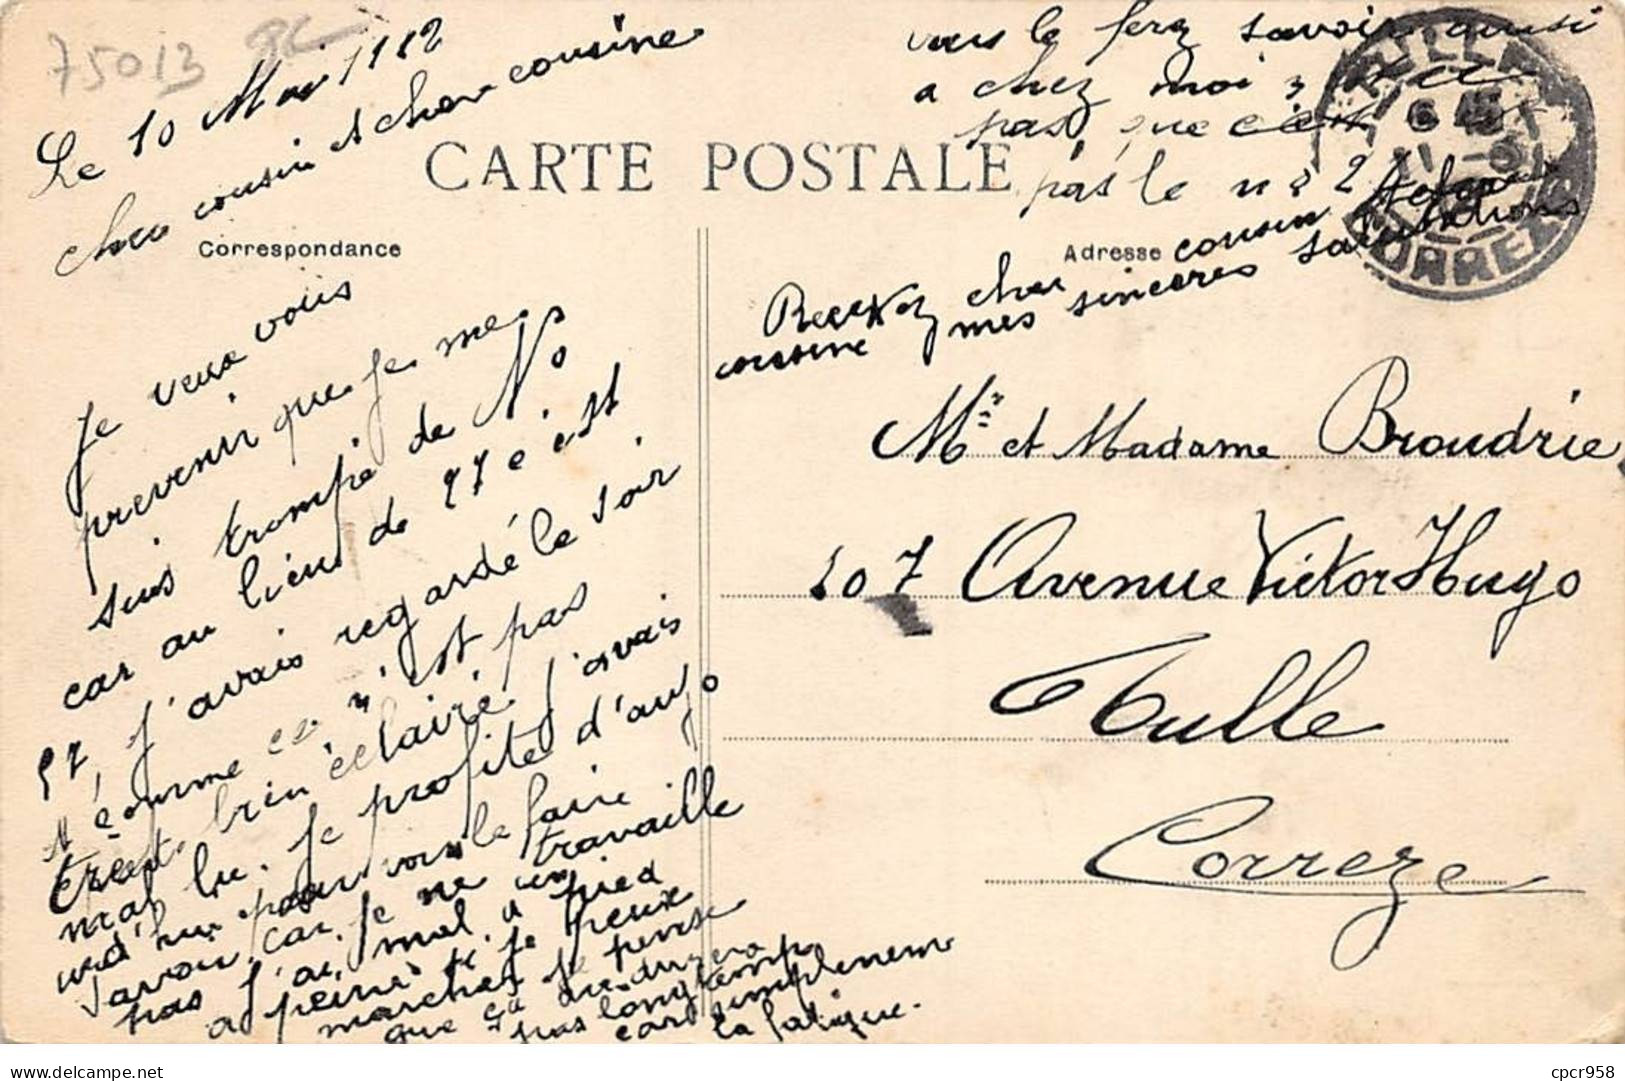 75013
Le 10 Mai 1912
cher cousin et chere cousine
CARTE POSTALE
Correspondance
Je veux vous
prevenir que je me
suis trompé de No
car au lieu de 27 c'est
57, J'avais regardé le soir
comme ce n'est pas
bien éclairé J'avais
mal lu. Je profite d'aujo
urd'hui pour vous le faire
savoir, car je ne travaille
pas J'ai mal a un pied
a peine si je peux
marcher je pense
que ça ne durera
pas longtemps
car simplement
la fatigue.
vous le ferez savoir aussi
a chez moi
pas que c'est
pas le n: 2
Adresse
Recevez cher cousin et chere
cousine mes sinceres salutations
TULLE
CORREZE
Mr et Madame Broudrie
107 Avenue Victor Hugo
Tulle
Correze
cpcr958